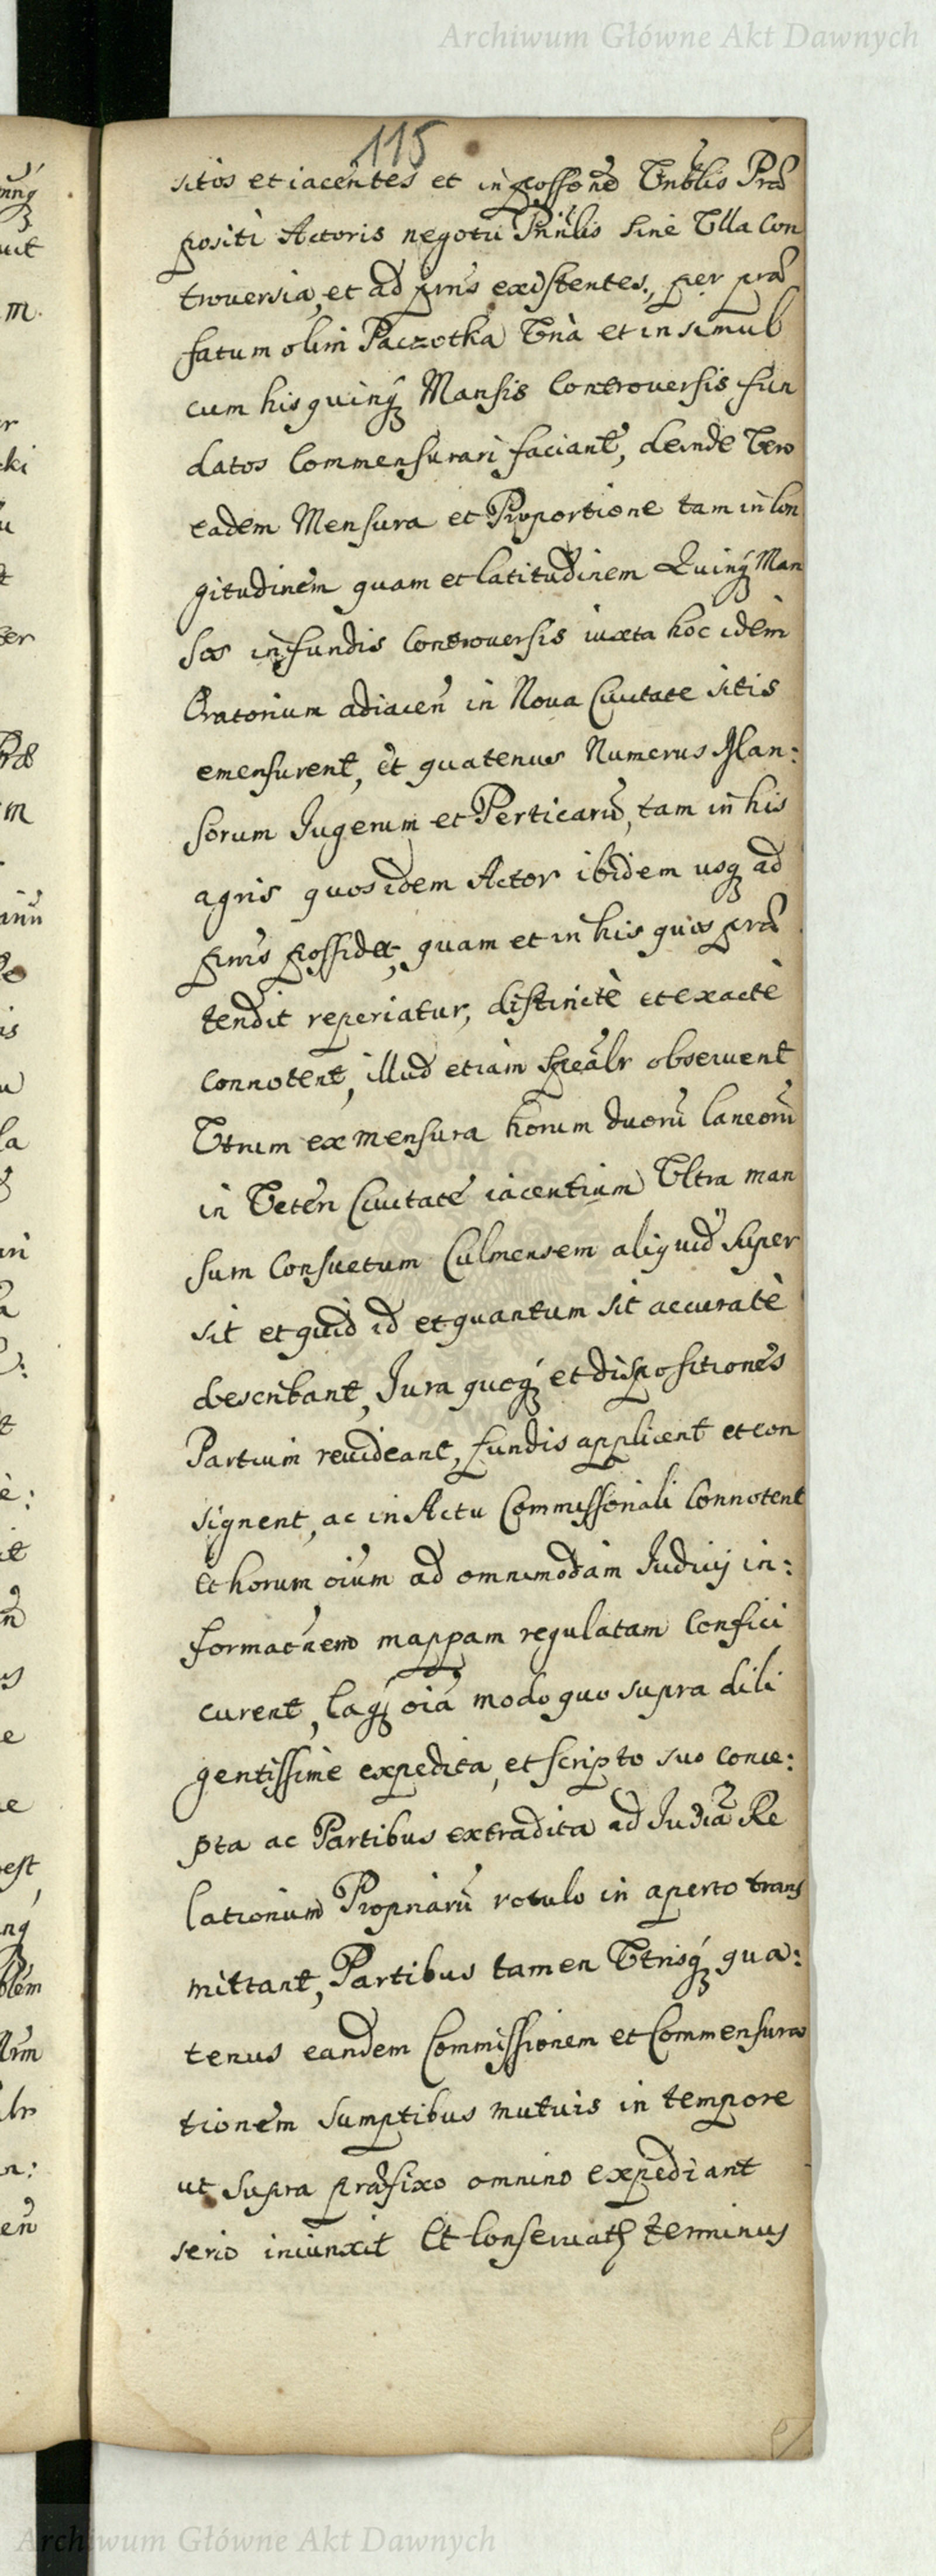 Archiwum Główne Akt Dawnych
115
sitos et iacentes et in possone Vnblis Præ
positi Actoris negotii Pnnlis sine Vlla Con
trouersia, et ad pnns existentes, per præ
fatum olim Paczotka Vna et in simul
cum his quinq Mansis Controuersis fun
datos Commensurari faciant, deinde Vero
eadem Mensura et Proportione tam in lon
gitudinem quam et latitudinem Quinq Man
sos in fundis Controuersis iuxta hoc idem
Oratorium adiacen in Noua Ciuitate sitis
emensurent, et quatenus Numerus Man:
sorum Iugerum et Perticaru, tam in his
agris quos idem Actor ibidem usq ad
pnns possidet, quam et in his quos præ
tendit reperiatur, distincte et exacte
connotent, illud etiam spealr obseruent
Vtrum ex mensura horum duoru laneoru
in Veteri Ciuitate iacentium Vltra man
sum Consuetum Culmensem aliquid super
sit et quid id et quantum sit accurate
describant, Iura quoq et dispositiones
Partium reuideant, fundis applicent et con
signent, ac in Actu Commissionali Connotent
et horum oium ad omnimodam Iudicij in:
formaonem mappam regulatam Confici
curent, Eaq oia modo quo supra dili
gentissime expedita, et scripto suo conce:
pta ac Partibus extradita ad Iudia Re
lationum Propriaru rotulo in aperto trans
mittant, Partibus tamen Vtrisq qua:
tenus eandem Commissionem et Commensura
tionem sumptibus mutuis in tempore
ut supra præfixo omnino expediant
serio iniunxit Et Conseruat terminus
Archiwum Główne Akt Dawnych